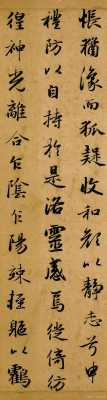 悵猶豫而狐疑收和顔以静志兮申
禮防以自持於是洛靈感焉徙倚彷
徨神光離合乍陰乍陽竦輕軀以鶴